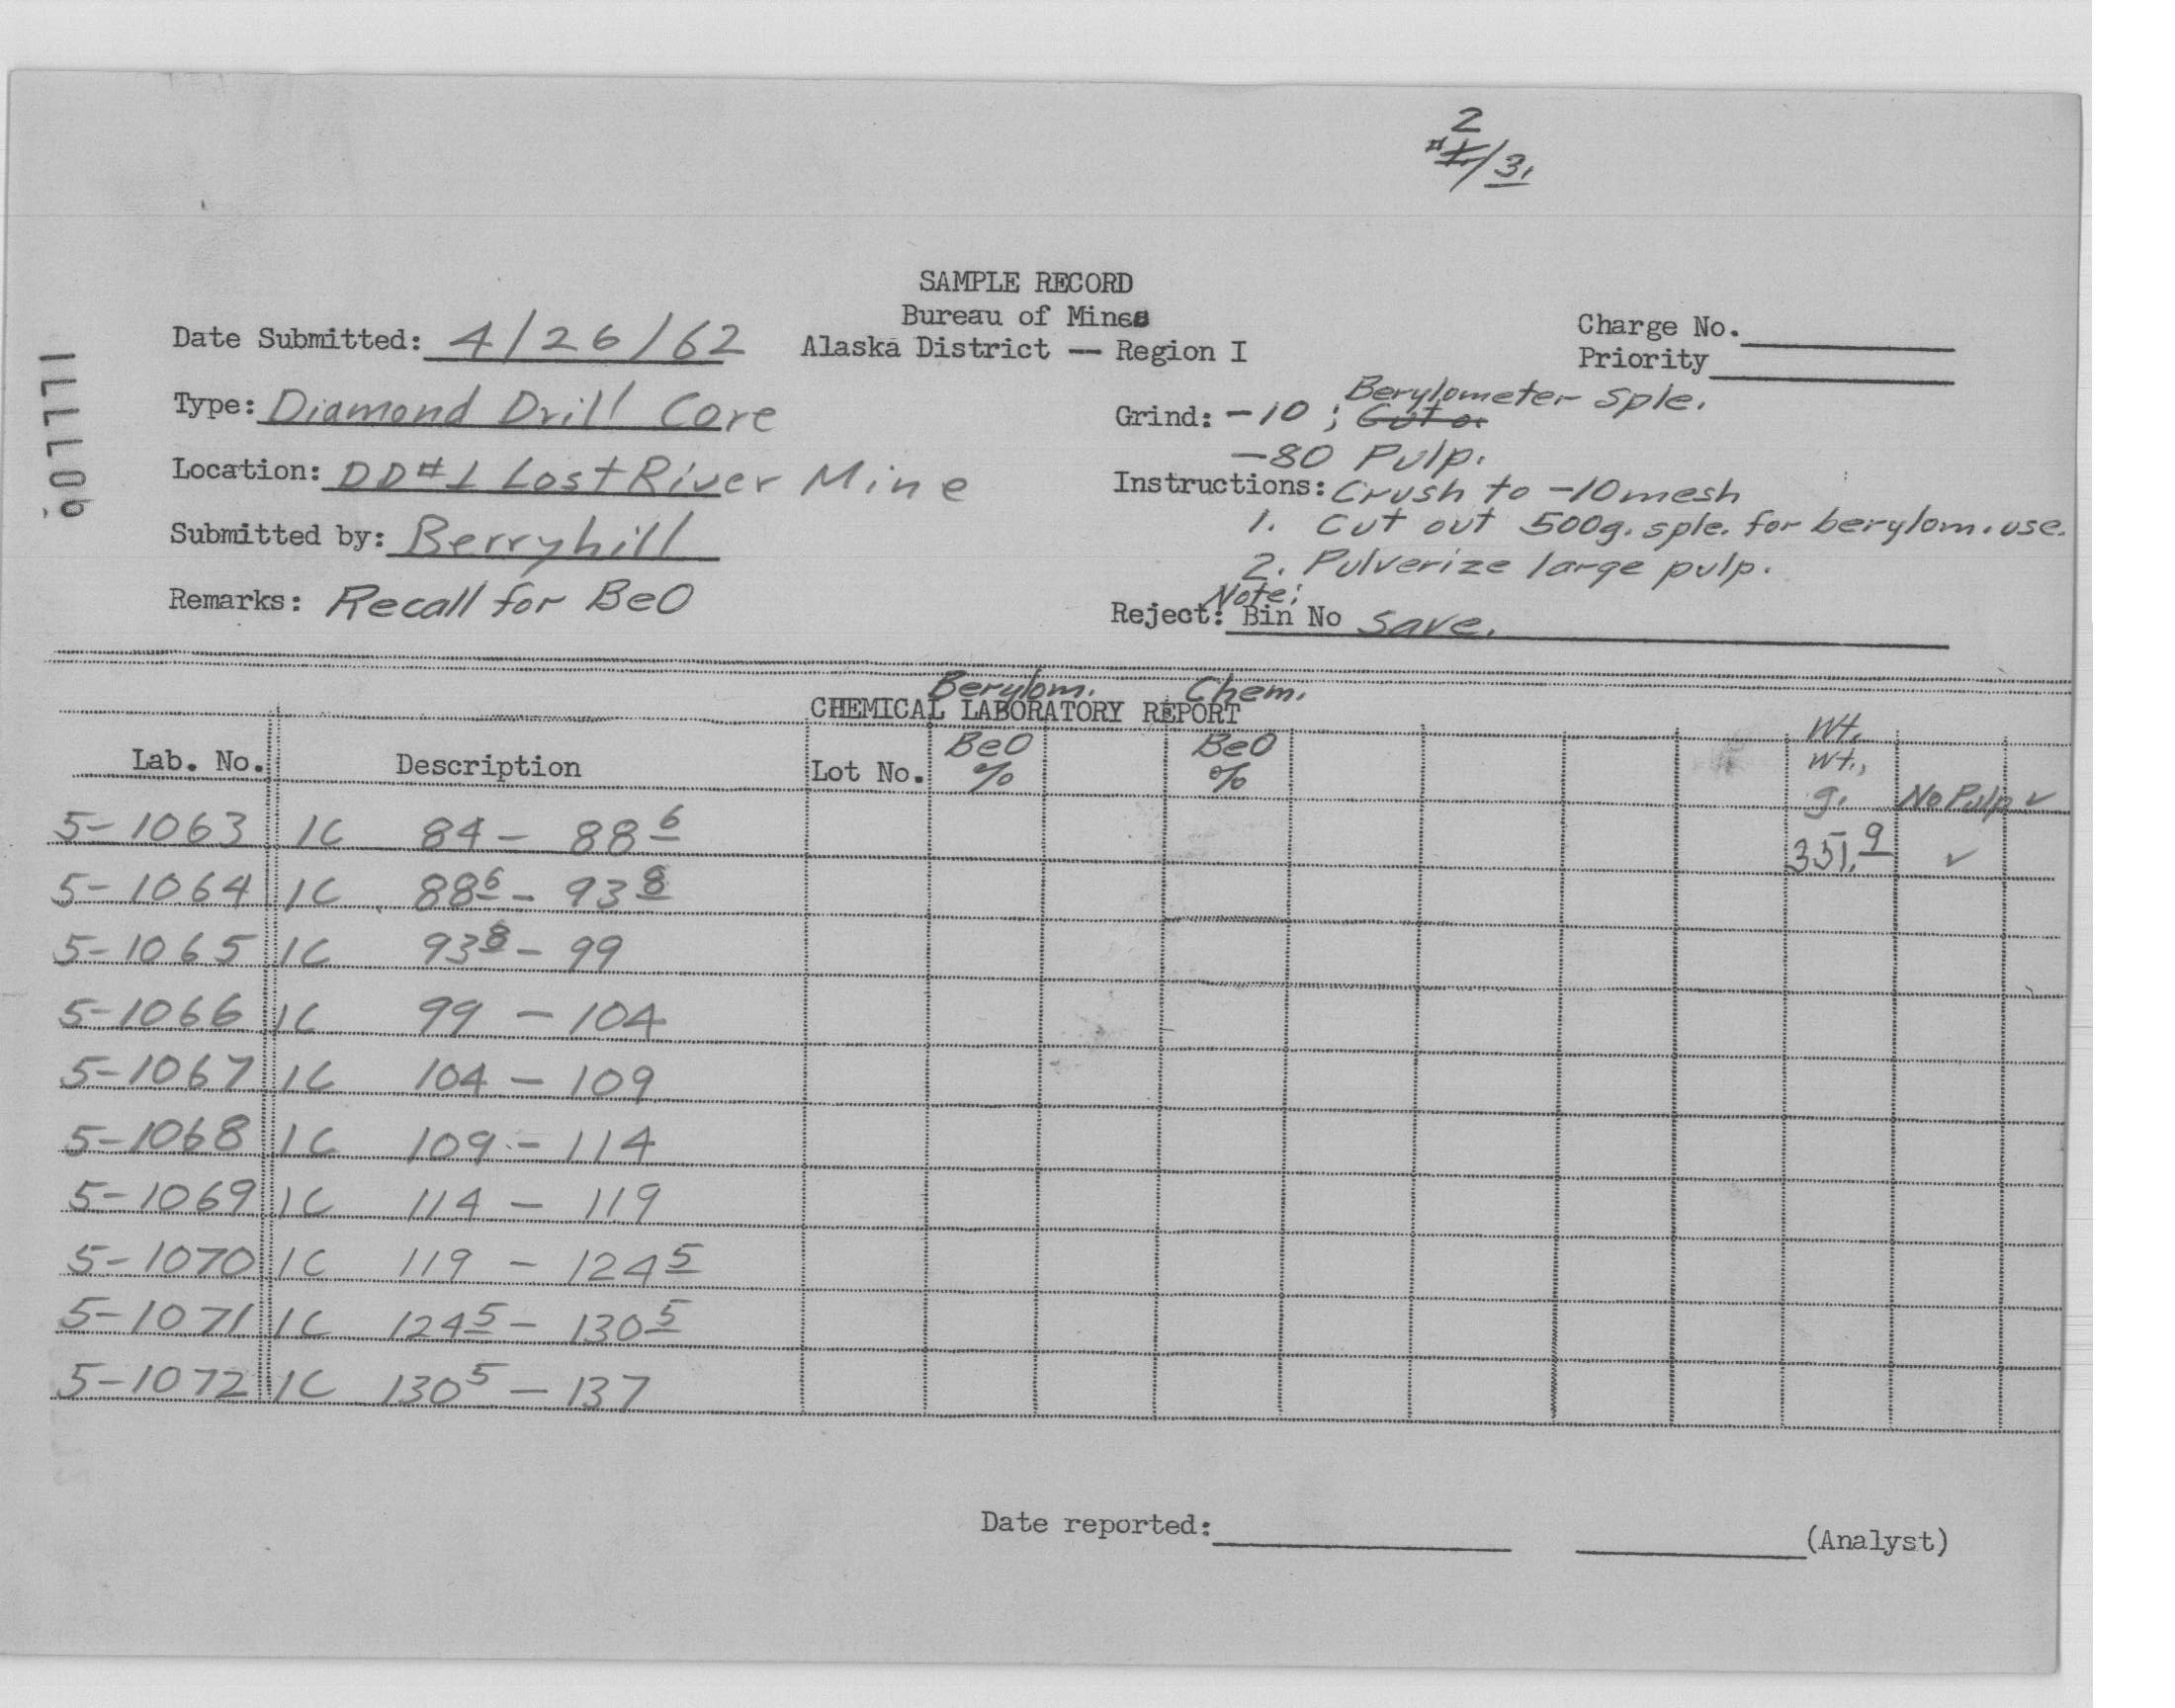 2
#1/3.
SAMPLE RECORD
Bureau of Mines
Alaska District — Region I
Date Submitted: 4/26/62
Charge No.
Priority
Type: Diamond Drill Core
Berylometer Sple.
Grind: -10 ; Cut o
-80 Pulp.
Location: DD#1 Lost River Mine
Instructions: Crush to -10 mesh
1. Cut out 500g. sple. for berylom. use.
Submitted by: Berryhill
2. Pulverize large pulp.
Remarks: Recall for BeO
Note:
Reject: Bin No Save.
Berylom. Chem.
CHEMICAL LABORATORY REPORT
Lab. No. Description Lot No. BeO % BeO % Wt. Wt., g. No Pulp ✓
5-1063 1C 84 - 88 6 351.9 ✓
5-1064 1C 88 6 - 93 8
5-1065 1C 93 8 - 99
5-1066 1C 99 - 104
5-1067 1C 104 - 109
5-1068 1C 109 - 114
5-1069 1C 114 - 119
5-1070 1C 119 - 124 5
5-1071 1C 124 5 - 130 5
5-1072 1C 130 5 - 137
Date reported: (Analyst)